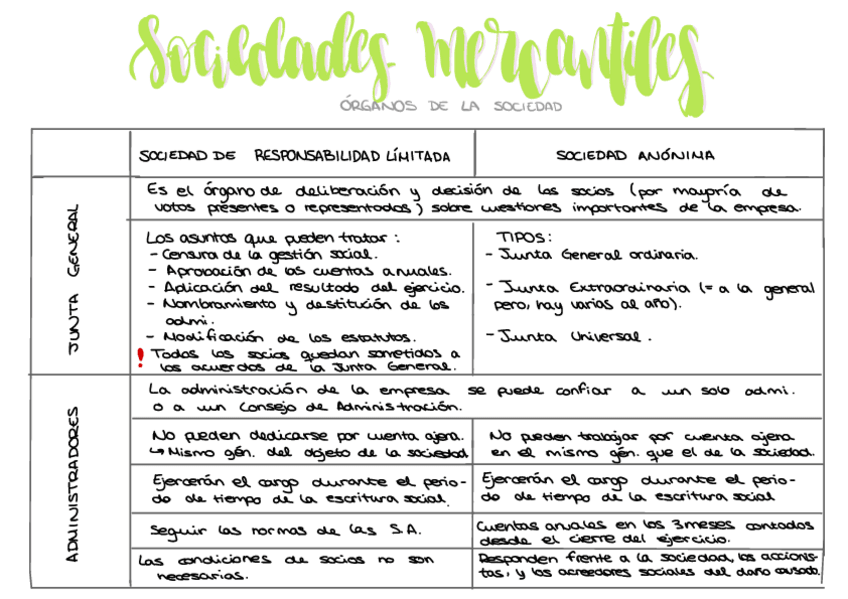 Sociedades Mercantiles
ÓRGANOS DE LA SOCIEDAD
SOCIEDAD DE RESPONSABILIDAD LÍMITADA
SOCIEDAD ANÓNIMA
JUNTA GENERAL
Es el órgano de deliberación y decisión de los socios (por mayoría de
votos presentes o representados) sobre cuestiones importantes de la empresa.
Los asuntos que pueden tratar:
- Censura de la gestión social.
- Aprobación de las cuentas anuales.
- Aplicación del resultado del ejercicio.
- Nombramiento y destitución de los
admi.
- Modificación de los estatutos.
! Todos los socios quedan sometidos a
los acuerdos de la Junta General.
TIPOS:
- Junta General ordinaria.
- Junta Extraordinaria (= a la general
pero, hay varias al año).
- Junta Universal.
ADMINISTRADORES
La administración de la empresa se puede confiar a un solo admi.
o a un Consejo de Administración.
No pueden dedicarse por cuenta ajena.
↳ Mismo gén. del objeto de la sociedad
No pueden trabajar por cuenta ajena
en el mismo gén. que el de la sociedad.
Ejercerán el cargo durante el perio-
do de tiempo de la escritura social.
Ejercerán el cargo durante el perio-
do de tiempo de la escritura social
Seguir las normas de las S.A.
Cuentas anuales en los 3 meses contados
desde el cierre del ejercicio.
Las condiciones de socios no son
necesarias.
Responden frente a la sociedad, los accionis-
tas, y los acreedores sociales del daño causado.